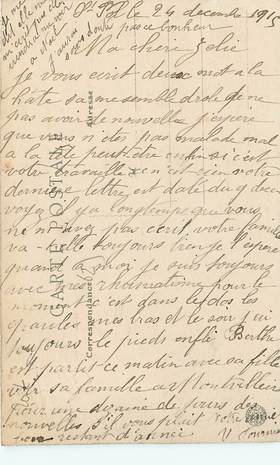 St Pol le 24 decembre 1915
pas ce bonheur
Ma cherè Jolie
je vous ecrit deux mot a la
hâte sa me semble drole de ne
pas avoir de nouvelle j'espère
que vous n'etes pas malade mal
a la tête peut être enfin si c'est
votre travaille c'en est rien votre
derniere lettre est daté du 9 decem
voyez il y a longtemps que vous
ne m'avez pas ecrit votre famille
va-t-elle toujours bien je l'espère
quand a moi je suis toujours
avec mes rhumatisme pour le
moment c'est dans le dos les
epaules mes bras et le soir j'ai
toujours le pieds enflé Berthe
est partit ce matin avec sa fille
voir sa famille a Montreuil
pour une dizaine de jours des
nouvelles s'il vous plait votre amie
restant d'année
CARTE POSTALE
Correspondance
Adresse